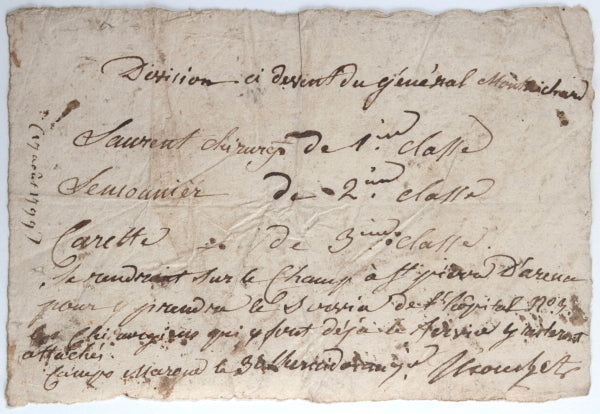 Division ci devent du Général Montrichard
Laurent chirurg. de 1.ère classe
Lemonnier de 2.ème classe
Carette de 3.ème classe
Se rendront sur le Champ à St pierre D'arena
pour y prendre le Servia de l'hôpital no 3
Les Chirurgiens qui y sont déja de Servia y
attachés
Campo Marone le 3
(17 août 1799)